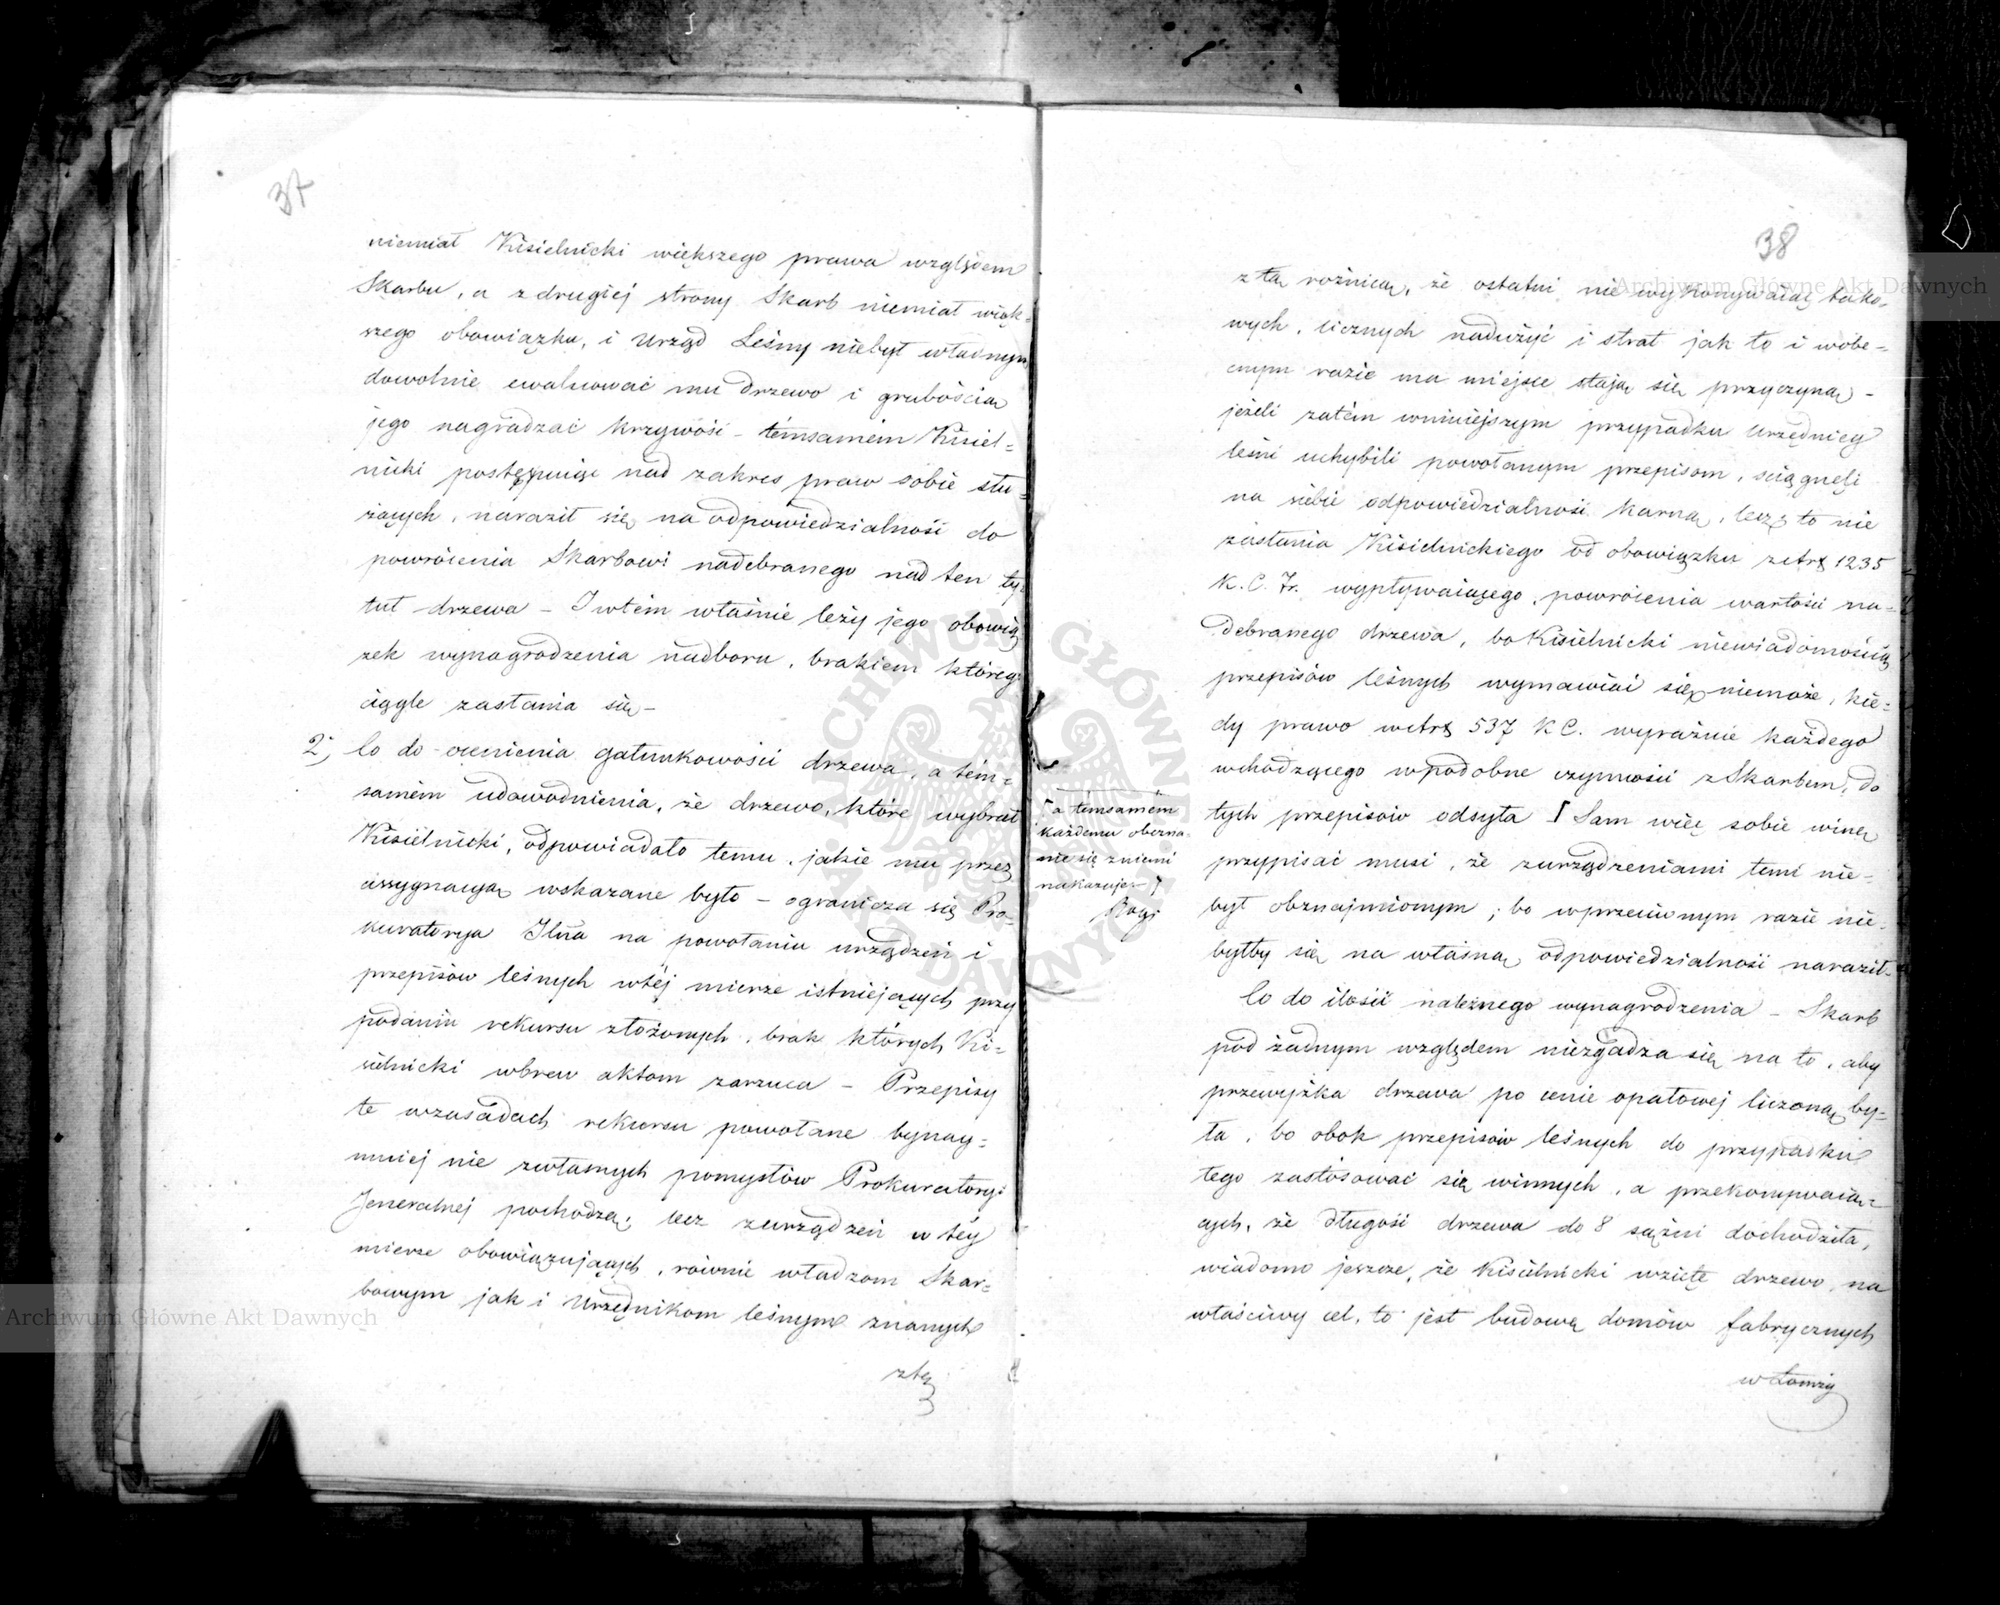 37
niemiał Kisielnicki większego prawa względem
Skarbu, a z drugiej strony Skarb niemiał więk-
szego obowiązku, i Urząd Leśny niebył władnym
dowolnie ewaluować mu drzewo i grubością
jego nagradzać krzywość – témsamém Kisiel-
nicki postępuiąc nad zakres praw sobie słu-
żących, naraził się na odpowiedzialność do
powrócenia Skarbowi nadebranego nad ten ty-
tuł drzewa – I wtém właśnie leży jego obowią
zek wynagrodzenia nadboru, brakiem któreg
ciągle zasłania się –
2; Co do ocenienia gatunkowości drzewa, a tém-
samém udowodnienia, że drzewo, które wybrał
Kisielnicki, odpowiadało temu, jakie mu przez
assygnacyą wskazane było – ogranicza się Pro-
kuratorya Jlna na powołaniu urządzeń i
przepisów leśnych wtéj mierze istniejących przy
podaniu rekursu złożonych, brak których Ki-
sielnicki wbrew aktom zarzuca – Przepisy
te wzasadach rekursu powołane bynay-
mniej nie zwłasnych pomysłów Prokuratoryi
Jeneralnej pochodzą, lecz zurządzeń w téy
mierze obowiązujących, równie władzom Skar-
bowym jak i Urzędnikom leśnym znanych
ztą
38
z tą rożnicą, że ostatni nie wykonywaiąc tako-
wych, licznych nadużyć i strat jak to i wobe-
cnym razie ma miejsce stają się przyczyną –
jeżeli zatém wniniejszym przypadku Urzędnicy
leśni uchybili powołanym przepisom, sciągnęli
na siebie odpowiedzialność karną, lecz to nie
zasłania Kisielnickiego od obowiązku zetrą 1235
K. C. Fr. wypływaiącego, powrócenia wartości na-
debranego drzewa, bo Kisielnicki niewiadomością
przepisów leśnych wymawiać się niemoże, kie-
dy prawo wetrą 537 K C. wyraźnie każdego
wchodzącego wpodobne czynności z Skarbem, do
tych przepisów odsyła ⌈ Sam więc sobie winę
przypisać musi, że zurządzeniami temi nie-
był obznajmionym ; bo wprzeciwnym razie nie-
byłby się na własną odpowiedzialność naraził –
⌈ a témsamém
każdemu obezna-
nie się zniemi
nakazuje – ⌉
Co do ilości należnego wynagrodzenia – Skarb
pod żadnym względem niezgadza się na to, aby
przewyżka drzewa po cenie opałowej liczoną by-
ła, bo obok przepisów leśnych do przypadku
tego zastósować się winnych, a przekonywaią-
cych, że długość drzewa do 8 sążni dochodziła,
wiadomo jeszcze, że Kisielnicki wzięte drzewo na
właściwy cel, to jest budowę domów fabrycznych
w Łomży
Archiwum Główne Akt Dawnych
Archiwum Główne Akt Dawnych
ARCHIWUM GŁÓWNE AKT DAWNYCH